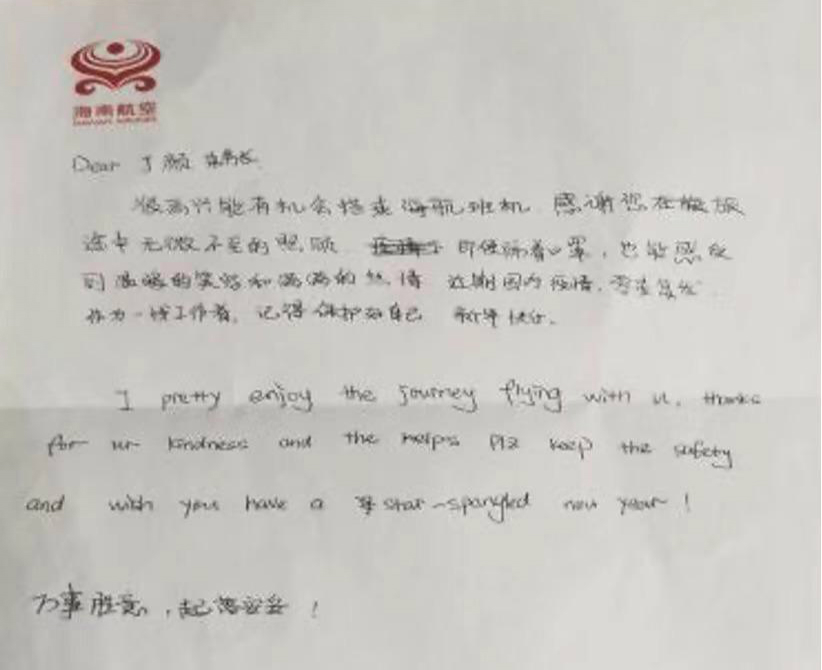 海南航空
HAINAN AIRLINES
Dear 丁颜 乘务长
很高兴能有机会搭乘海航班机 感谢您在旅
途中无微不至的照顾 即便隔着口罩，也能感受
到温暖的笑容和满满的热情 近期国内疫情，零星复发
作为一线工作者，记得保护好自己 新年快乐。
I pretty enjoy the journey flying with u, thanks
for ur kindness and the helps Plz keep the safety
and wish you have a star-spangled new year!
万事胜意，起落安妥！